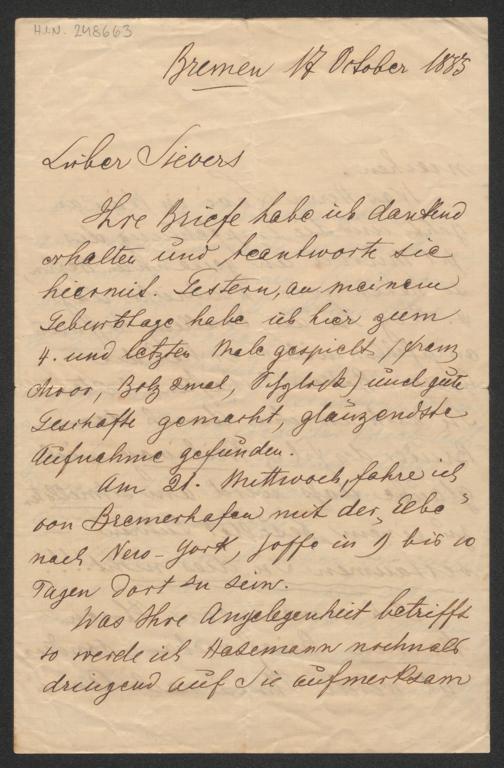 H.I.N. 248663
Bremen 17 October 1885
Lieber Sievers
Ihre Briefe habe ich dankend
erhalten und beantworte sie
hiermit. Gestern, an meinem
Geburtstage habe ich hier zum
4. und letzten Male gespielt (Franz
Moor, Bolz 2mal, Shylock) und gute
Geschäfte gemacht, glänzendste
Aufnahme gefunden.
Am 21. Mittwoch, fahre ich
von Bremerhafen mit der „Elbe"
nach New-York, hoffe in 9 bis 10
Tagen dort zu sein.
Was Ihre Angelegenheit betrifft
so werde ich Hasemann nochmals
dringend auf Sie aufmerksam